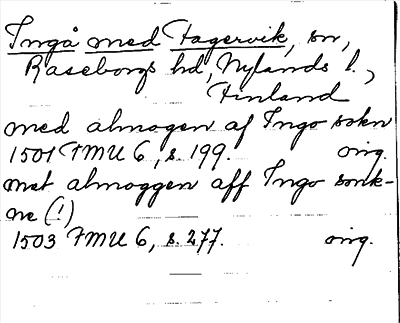 Ingå med Fagervik, sn,
Raseborgs hd, Nylands l.,
Finland
med almogen af Ingo sokn
1501 FMU 6, s. 199. orig.
met almoggen aff Ingo sonk-
ne (!)
1503 FMU 6, s. 277. orig.